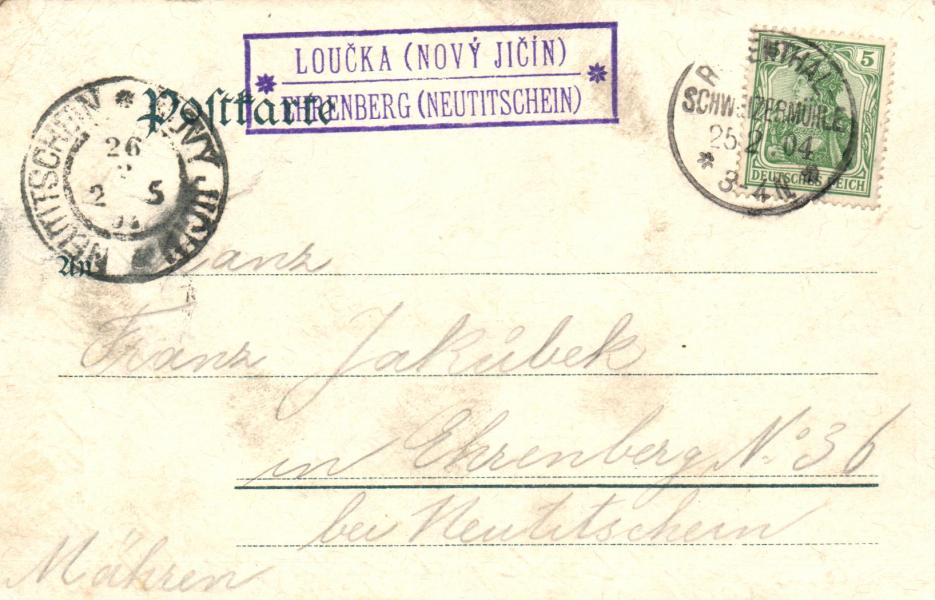 LOUČKA (NOVÝ JIČÍN)
EHRENBERG (NEUTITSCHEIN)
Postkarte
NEUTITSCHEIN * NOVÝ JIČÍN
26
2 5
ROSENTHAL
SCHWEIZERMÜHLE
25.2.04
* 3-4 N *
5
DEUTSCHES REICH
An Franz
Franz Jakübek
in Ehrenberg No 36
bei Neutitschein
Mähren